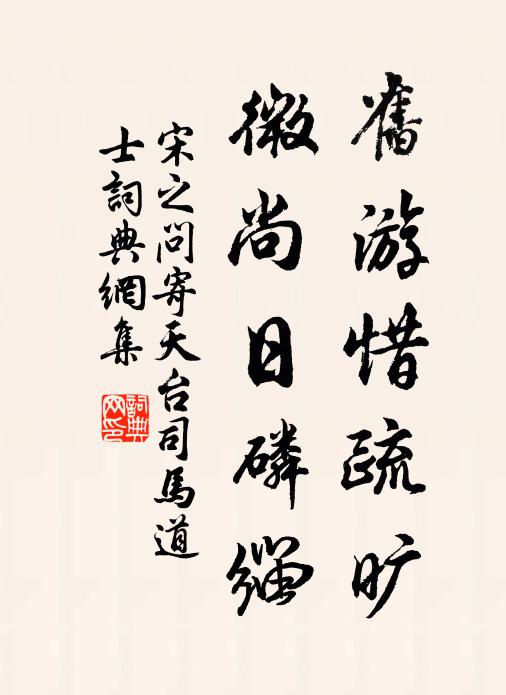 舊游惜疏旷
微尚日磷缁
宋之问寄天台司馬道
士詞典網集
詞典网印